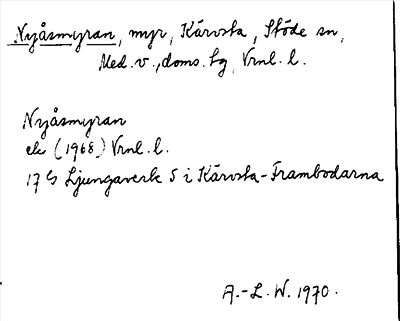 Nyåsmyran, myr, Kärvsta, Stöde sn,
Med. v., doms. hg, Vrnl. l.
Nyåsmyran
ek (1968) Vrnl. l.
17 G Ljungaverk S i Kärvsta-Frambodarna
A.-L. W. 1970.